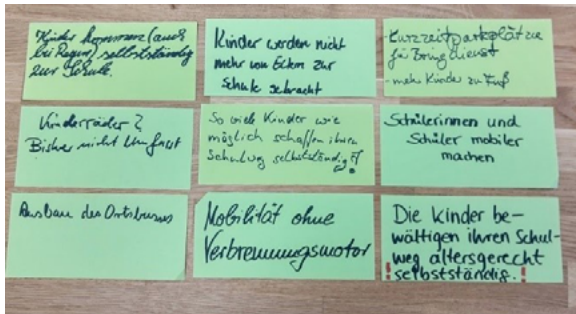 Kinder kommen (auch
bei Regen) selbstständig
zur Schule.
Kinder werden nicht
mehr von Eltern zur
Schule gebracht
Kurzzeitparkplätze
für Bringdienst
- mehr Kinder zu Fuß
Kinderräder?
Bisher nicht
So viele Kinder wie
möglich schaffen ihren
Schulweg selbstständig
Schülerinnen und
Schüler mobiler
machen
Ausbau des Ortsbusses
Mobilität ohne
Verbrennungsmotor
Die Kinder be-
wältigen ihren Schul-
weg altersgerecht
! selbstständig. !